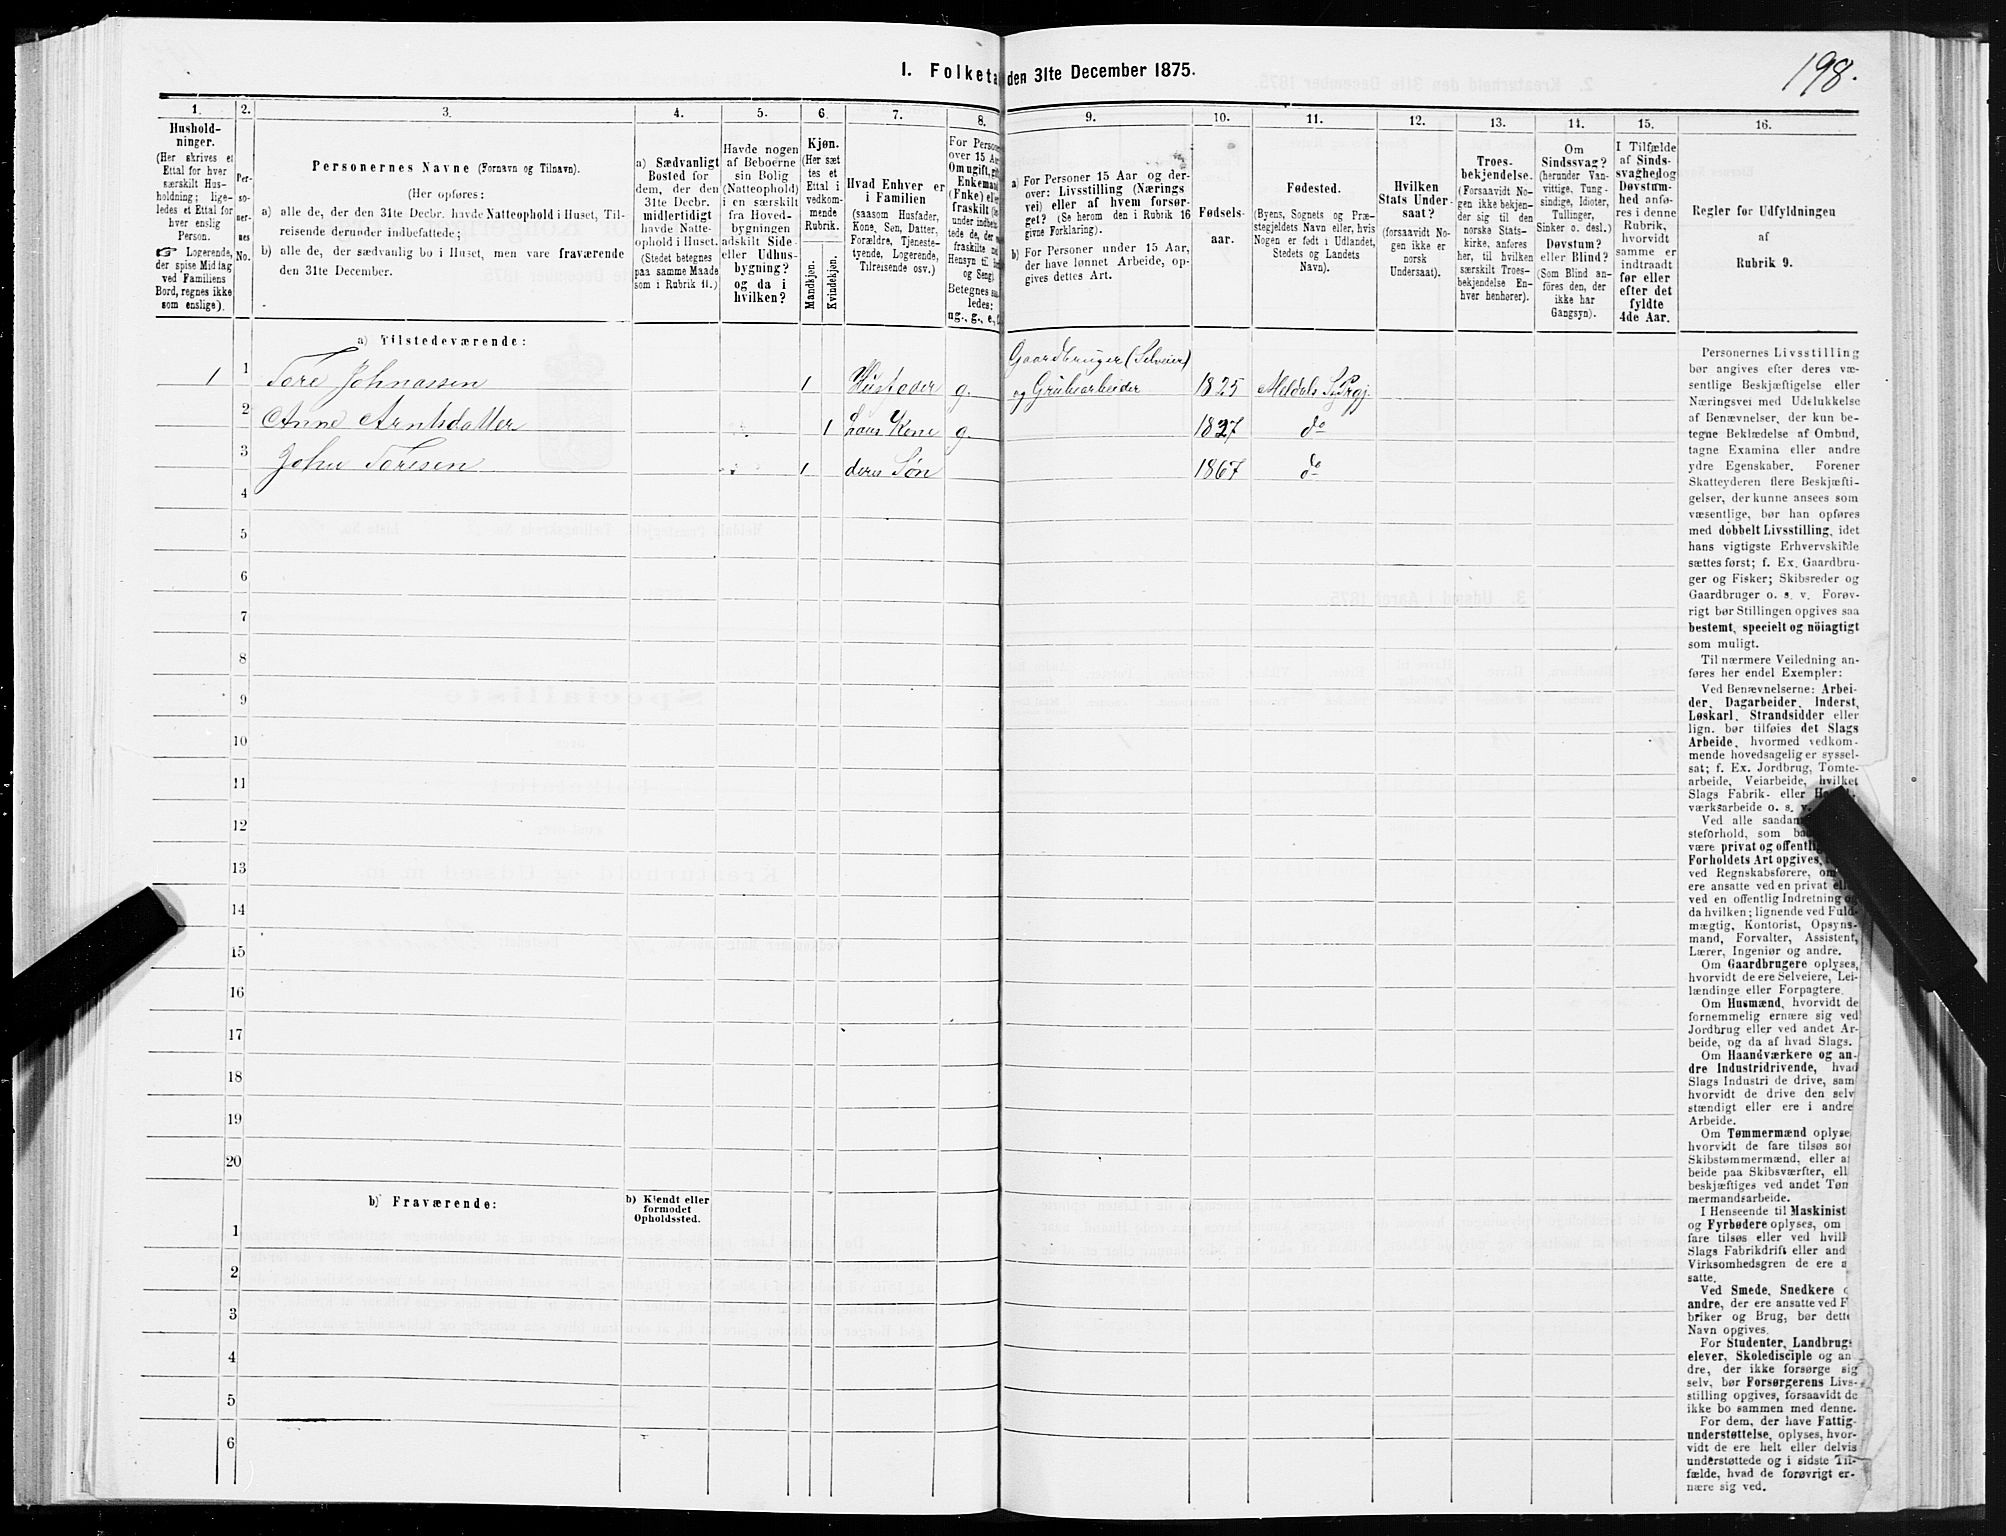 198.
I. Folketa den 31te December 1875.
1. 2. 3. 4. 5. 6. 7. 8. 9. 10. 11. 12. 13. 14. 15. 16.
Hushold-
ninger.
(Her skrives et
Ettal for hver
særskilt Hus-
holdning; lige-
ledes et Ettal for
hver enslig
Person.
☞ Logerende,
der spise Middag
ved Familiens
Bord, regnes ikke
som enslige).
Per-
so-
ner-
nes
No.
Personernes Navne (Fornavn og Tilnavn).
(Her opføres:
a) alle de, der den 31te Decbr. havde Natteophold i Huset, Til-
reisende derunder indbefattede;
b) alle de, der sædvanlig bo i Huset, men vare fraværende
den 31te December.
a) Sædvanligt
Bosted for
dem, der den
31te Decbr.
midlertidigt
havde Natte-
ophold i Huset.
(Stedet betegnes
paa samme Maade
som i Rubrik 11.)
Havde nogen
af Beboerne
sin Bolig
(Natteophold)
i en særskilt
fra Hoved-
bygningen
adskilt Side-
eller Udhus-
bygning?
og da i
hvilken?
Kjøn.
(Her sæt-
tes et
Ettal i
vedkom-
mende
Rubrik.
Mandkjøn.
Kvindekjøn.
Hvad Enhver er
i Familien
(saasom Husfader,
Kone, Søn, Datter,
Forældre, Tjeneste-
tyende, Logerende,
Tilreisende osv.)
For Persone
over 15 Aa
Om ugift, gift
Enkemand
(Enke) elle
fraskilt (
under indbe
tede de, der
fraskilte
Hensyn til
og Seng).
Betegnes saa
ledes:
ug., g., e.,
a) For Personer 15 Aar og der-
over: Livsstilling (Nærings-
vei) eller af hvem forsør-
get? (Se herom den i Rubrik 16
givne Forklaring).
b) For Personer under 15 Aar,
der have lønnet Arbeide, op-
gives dettes Art.
Fødsels-
aar.
Fødested.
(Byens, Sognets og Præ-
stegjeldets Navn eller, hvis
Nogen er født i Udlandet,
Stedets og Landets
Navn).
Hvilken
Stats Under-
saat?
(forsaavidt No-
gen ikke er
norsk
Undersaat).
Troes-
bekjendelse.
(Forsaavidt No-
gen ikke bekjen-
der sig til den
norske Stats-
kirke, anføres
her, til hvilken
særskilt Troes-
bekjendelse En-
hver henhører).
Om
Sindssvag?
(herunder Van-
vittige, Tung-
sindige, Idioter,
Tullinger,
Sinker o. desl.)
Døvstum?
eller Blind?
(Som Blind an-
føres den, der
ikke har
Gangsyn).
I Tilfælde
af Sinds-
svaghed og
Døvstum-
hed anfø-
res i denne
Rubrik,
hvorvidt
samme er
indtraadt
før eller
efter det
fyldte
4de Aar.
Regler for Udfyldningen
af
Rubrik 9.
a) Tilstedeværende:
1 1 Tore Johnassen 1 Husfader g. Gaardbruger (Selveier)
og Grubearbeider 1825 Meldals Prgj.
2 Anne Arntsdatter 1 hans Kone g. 1827 do
3 John Toresen 1 deres Søn 1867 do
4
5
6
7
8
9
10
11
12
13
14
15
16
17
18
19
20
b) Fraværende:
b) Kjendt eller
formodet
Opholdssted.
1
2
3
4
5
6
Personernes Livsstilling
bør angives efter deres væ-
sentlige Beskjæftigelse eller
Næringsvei med Udelukkelse
af Benævnelser, der kun be-
tegne Beklædelse af Ombud,
tagne Examina eller andre
ydre Egenskaber. Forener
Skatteyderen flere Beskjæfti-
gelser, der kunne ansees som
væsentlige, bør han opføres
med dobbelt Livsstilling, idet
hans vigtigste Erhvervskilde
sættes først; f. Ex. Gaardbru-
ger og Fisker; Skibsreder og
Gaardbruger o. s. v. Forøv-
rigt bør Stillingen opgives saa
bestemt, specielt og nöiagtigt
som muligt.
Til nærmere Veiledning an-
føres her endel Exempler:
Ved Benævnelserne: Arbei-
der, Dagarbeider, Inderst,
Løskarl, Strandsidder eller
lign. bør tilføies det Slags
Arbeide, hvormed vedkom-
mende hovedsagelig er syssel-
sat; f. Ex. Jordbrug, Tomte-
arbeide, Veiarbeide, hvilket
Slags Fabrik- eller
værksarbeide o. s. v.
Ved alle saadan
steforhold, som
være privat og offentlig
Forholdets Art opgives,
ved Regnskabsførere,
ere ansatte ved en privat
ved en offentlig Indretning og
da hvilken; lignende ved Fuld-
mægtig, Kontorist, Opsyns-
mand, Forvalter, Assistent,
Lærer, Ingeniør og andre.
Om Gaardbrugere oplyses,
hvorvidt de ere Selveiere, Lei-
lændinge eller Forpagtere.
Om Husmænd, hvorvidt de
fornemmelig ernære sig ved
Jordbrug eller ved andet Ar-
beide, og da af hvad Slags.
Om Haandværkere og an-
dre Industridrivende, hvad
Slags Industri de drive, sam
hvorvidt de drive den selv
stændigt eller ere i andre
Arbeide.
Om Tømmermænd oplyse
hvorvidt de fare tilsøs so
Skibstømmermænd, eller a
beide paa Skibsværfter, ell
beskjæftiges ved andet Tøn
mermandsarbeide.
I Henseende til Maskinist
og Fyrbødere oplyses, om
fare tilsøs eller ved hvill
Slags Fabrikdrift eller and
Virksomhedsgren de ere a
satte.
Ved Smede, Snedkere
andre, der ere ansatte ved F
briker og Brug, bør dette
Navn opgives.
For Studenter, Landbrug
elever, Skoledisciple og an
dre, der ikke forsørge sig
selv, bør Forsørgerens Livs-
stilling opgives, forsaavidt de
ikke bo sammen med denne.
For dem, der have Fattig-
understøttelse, oplyses, hvor-
vidt de ere helt eller delvis
understøttede og i sidste Til-
fælde, hvad de forøvrigt er-
nære sig ved.